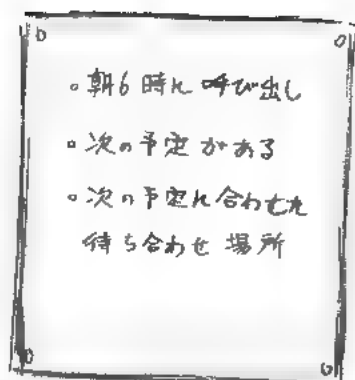 。朝6時に呼び出し
。次の予定がある
。次の予定に合わせた
待ち合わせ場所